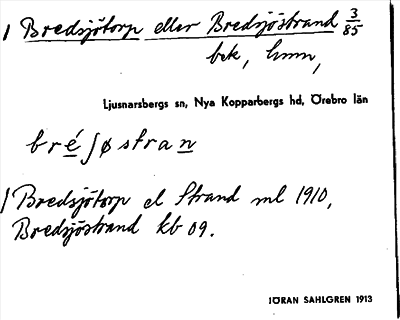 1 Bredsjötorp eller Bredsjöstrand 3/85
bek, hmn,
Ljusnarsbergs sn, Nya Kopparbergs hd, Örebro län
bréʃøstran
1 Bredsjötorp el Strand ml 1910,
Bredsjöstrand kb 09.
JÖRAN SAHLGREN 1913